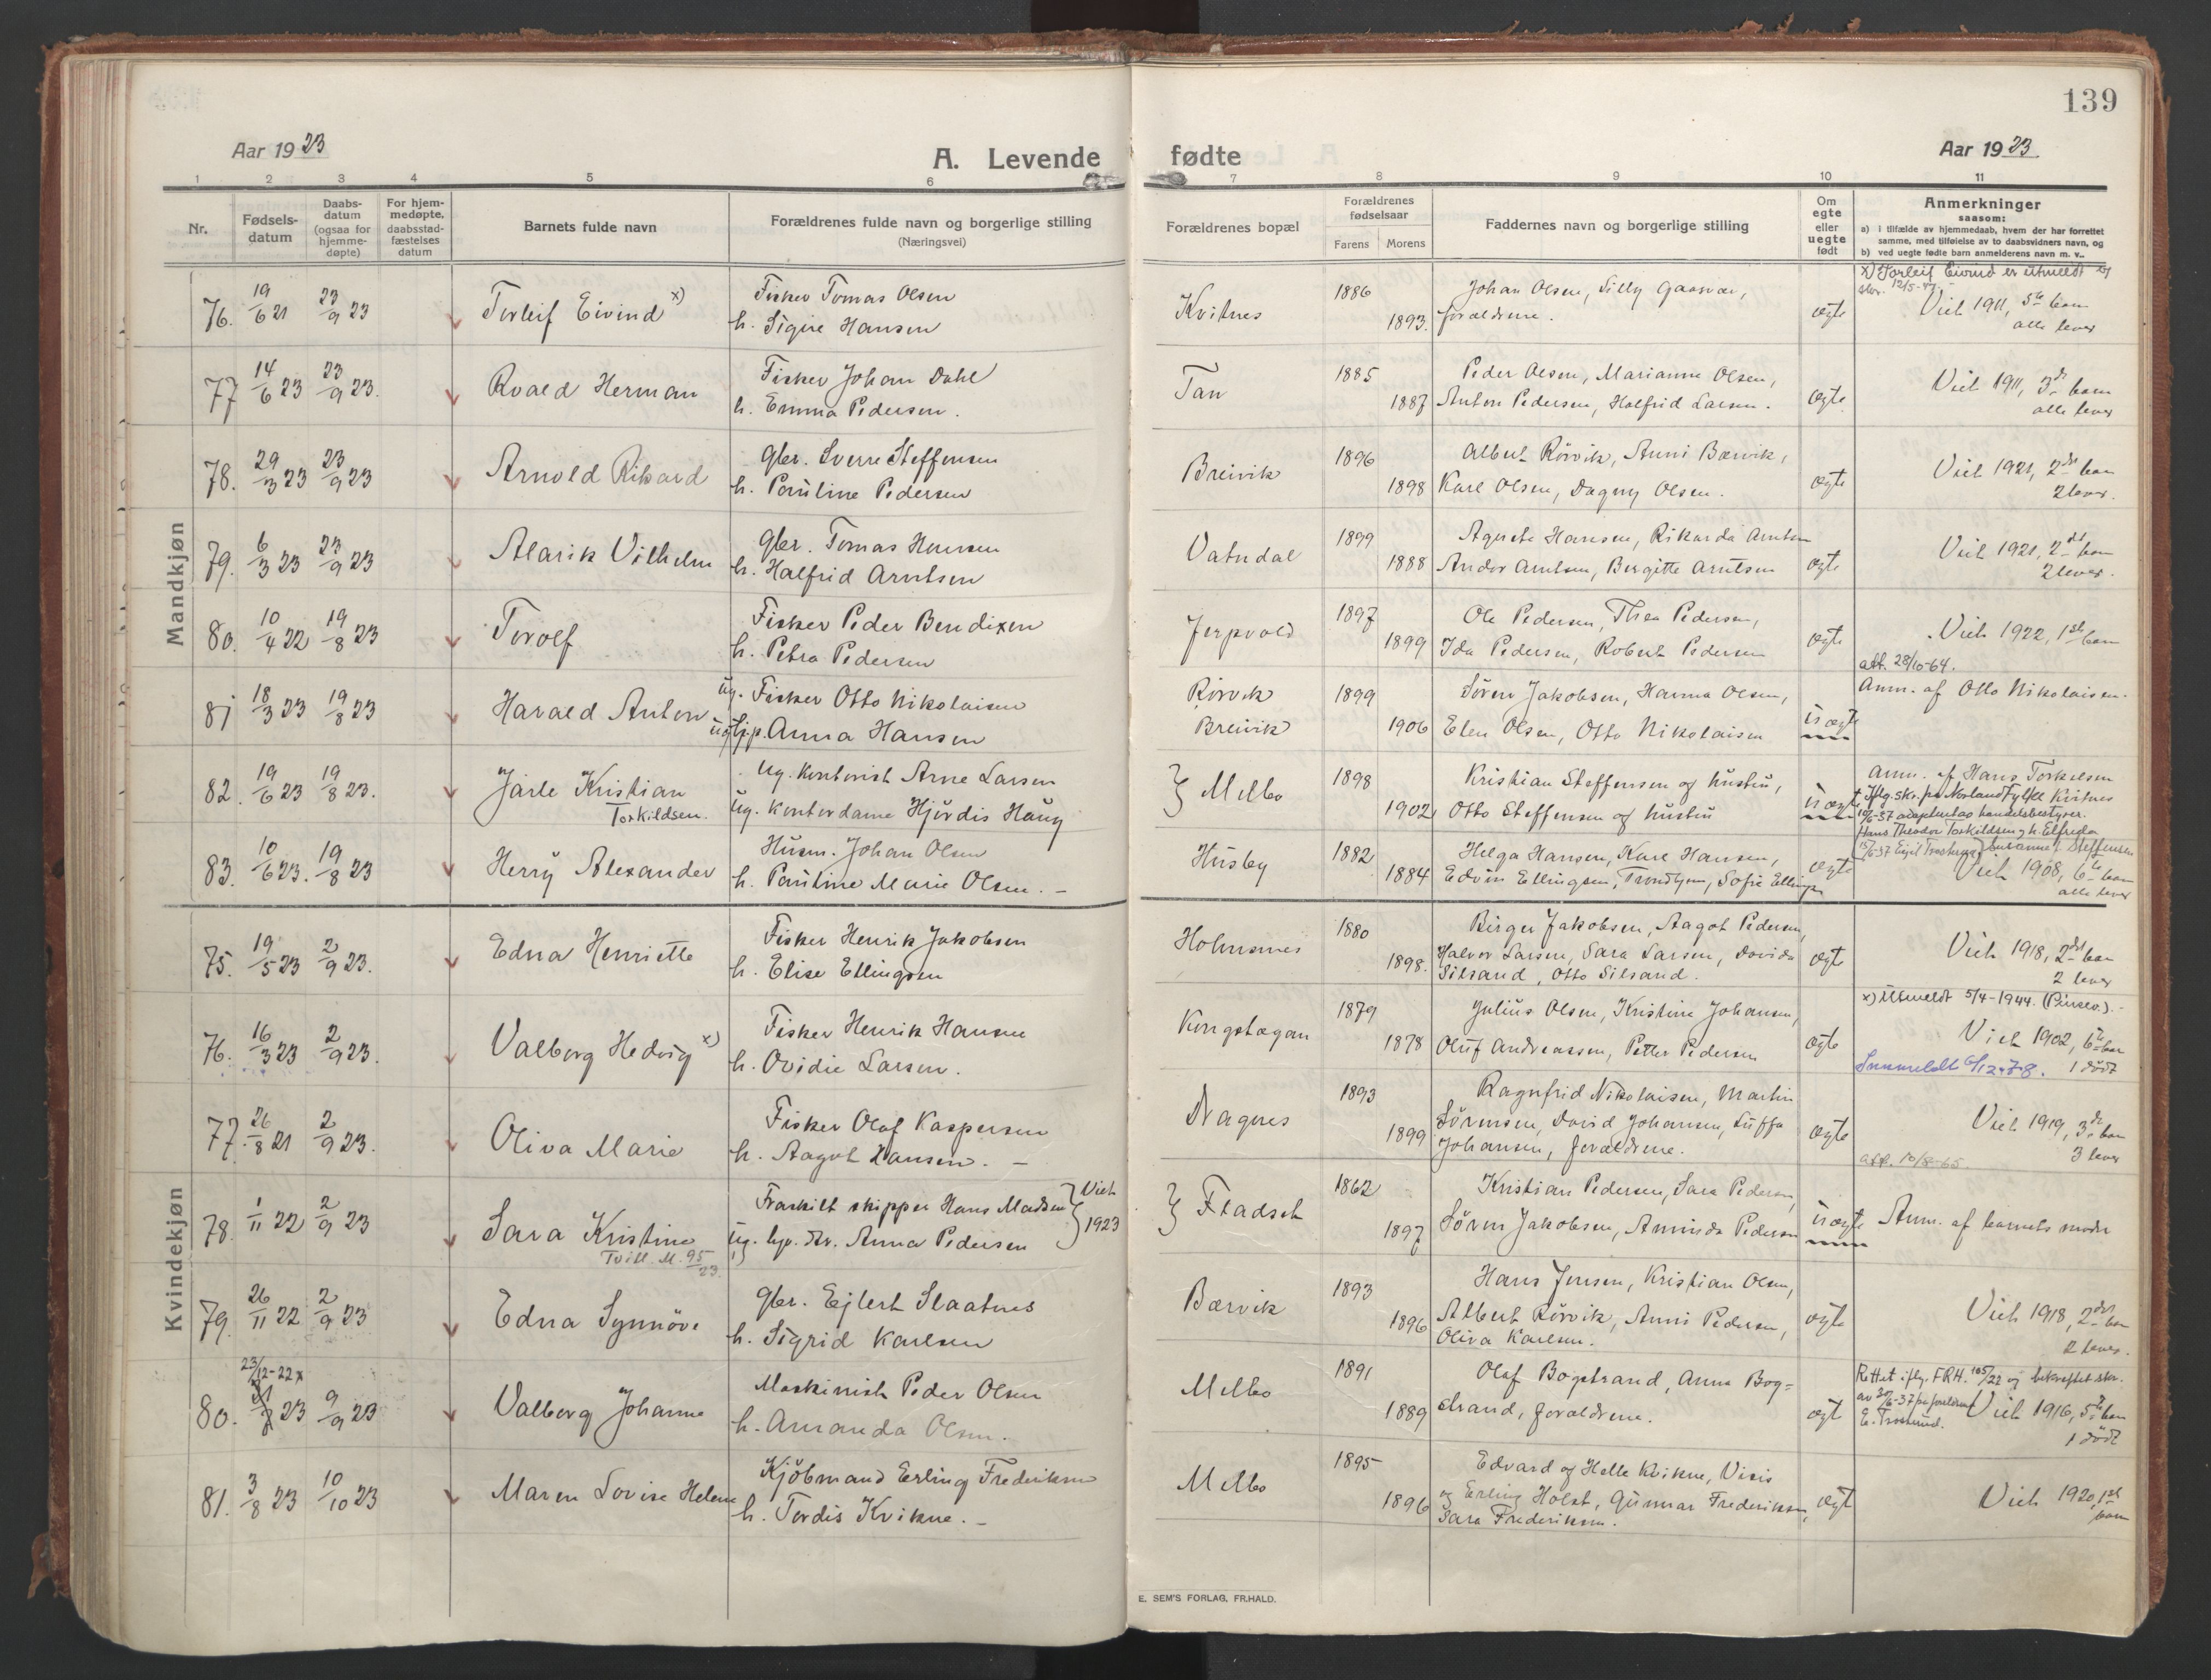 139
Aar 1923
A. Levende fødte
Aar 1923
1 2 3 4 5 6 7 8 9 10 11
Nr.
Fødsels-
datum
Daabs-
datum
(ogsaa for
hjemme-
døpte)
For hjem-
medøpte,
daabsstad-
fæstelses
datum
Barnets fulde navn
Forældrenes fulde navn og borgerlige stilling
(Næringsvei)
Forældrenes bopæl
Forældrenes
fødselsaar
Farens Morens
Faddernes navn og borgerlige stilling
Om
egte
eller
uegte
født
Anmerkninger
saasom:
a) i tilfælde av hjemmedaab, hvem der har forrettet
samme, med tilføielse av to daabsvidners navn, og
b) ved uegte fødte barn anmelderens navn m. v..
Mandkjøn
76. 19/6 21 23/9 23 Torleif Eivind x)
Fisker Tomas Olsen
h. Signe Hansen
Kvitnes 1886 1893.
Johan Olsen, Silly Gaasvær,
forældrene.
ægte
x) Torleif Eivind er utmeldt
Viet 1911, 5te barn
alle lever
77 14/6 23 23/9 23. Roald Herman
Fisker Johan Dahl
h. Emma Pedersen.
Tan 1885 1887
Peder Olsen, Marianne Olsen,
Anton Pedersen, Halfrid Larsen.
ægte
Viet 1911, 3de barn
alle lever
78. 29/3 23 23/9 23 Arnold Rikard
gbr. Sverre Steffensen
h. Pauline Pedersen
Breivik 1896 1898
Albert Rörvik, Anni Bærvik,
Karl Olsen, Dagny Olsen.
ægte
Viet 1921, 2det barn
2 lever.
79. 6/3 23 23/9 23 Alarik Vilhelm
gbr. Tomas Hansen
h. Halfrid Arntsen
Vatndal 1899 1888
Agnete Hansen, Rikarda Arntsen
Andor Arntsen, Bergitte Arntsen
ægte
Viet 1921, 2det barn
2 lever.
80. 10/4 22 19/8 23 Torolf
Fisker Peder Bendixen
h. Petra Pedersen
Jerpvold 1897 1899
Ole Pedersen, Thea Pedersen,
Ida Pedersen, Robert Pedersen
ægte
Viet 1922, 1ste barn
att. 28/10-64.
81 18/3 23 19/8 23 Harald Anton
ug. Fisker Otto Nikolaisen
ug. tj.p. Anna Hansen
Rörvik
Breivik
1899 1906
Sören Jakobsen, Hanna Olsen,
Elen Olsen, Otto Nikolaisen
uægte
Anm. af Otto Nikolaisen.
82. 19/6 23 19/8 23. Jarle Kristian
Torkildsen.
ug. Kontorist Arne Larsen
ug. Kontordame Hjördis Haug
} Melbo 1898 1902
Kristian Steffensen og hustru,
Otto Steffensen og hustru
uægte
Anm. af Hans Torkelsen
Iflg. skr. fra Nordland fylke Kvitnes
10/6-37 adopteret av handelsbestyrer
Hans Theodor Torkildsen og h. Elfreda
Susanne f. Steffensen
83. 10/6 23. 19/8 23 Herry Alexander
Husm. Johan Olsen
h. Pauline Marie Olsen. –
Husby 1882 1884
Helga Hansen, Karl Hansen,
Edvin Ellingsen, Trondhjem, Sofie Ellingsen
ægte
Viet 1908, 6te barn
alle lever
Kvindekjøn
75. 19/5 23 2/9 23. Edna Henriette
Fisker Henrik Jakobsen
h. Elise Ellingsen
Holmsnes 1880 1898.
Birger Jakobsen, Aagot Pedersen,
Halvor Larsen, Sara Larsen, Dovida
Silsand, Otto Silsand.
ægte
Viet 1918, 2det barn
2 lever
76. 16/3 23 2/9 23. Valborg Hedvig x)
Fisker Henrik Hansen
h. Ovidie Larsen.
Kongstagan 1879 1878
Julius Olsen, Kristine Johansen,
Oluf Andreassen, Petter Pedersen
ægte
x) Utmeldt 5/4-1944. (Pinsev.). -
Viet 1902, 6te barn
1 död
Innmeldt 6/12-78.
77. 26/8 21 2/9 23. Oliva Marie
Fisker Olaf Kaspersen
h. Aagot Hansen. –
Nagnes 1893 1899
Ragnfrid Nikolaisen, Martin
Sörensen, David Johansen, Luffa
Johansen, forældrene.
ægte
Viet 1919, 3de barn
3 lever
att. 10/8-65.
78. 1/11 22 2/9 23 Sara Kristine
Tvill. M. 95/23.
Fraskilt skipper Hans Madsen
ug. hp. Anna Pedersen
} Viet
1923
} Fladset 1862 1897
Kristian Pedersen, Sara Pedersen,
Sören Jakobsen, Aminda Pedersen
uægte
Anm. af barnets moder
79. 26/11 22 2/9 23 Edna Synnöve
gbr. Ejlert Slaatnes
h. Sigrid Karlsen
Bærvik 1893 1896
Hans Jensen, Kristian Olsen,
Albert Rörvik, Anni Pedersen,
Oliva Karlsen.
ægte
Viet 1918, 2det barn
2 lever.
80. 23/12-22 x 23 9/9 23 Valborg Johanne
Maskinist Peder Olsen
h. Amanda Olsen.
Melbo 1891 1889
Olaf Bogstrand, Anna Bog=
strand, forældrene.
ægt
Rettet iflg. FRH. 105/22 og bekreftet skr.
E. Trosterud.
Viet 1916, 5te barn
1 död
81. 3/8 23 10/10 23 Maren Lovise Helene
Kjöbmand Erling Frederiksen
h. Tordis Kvikne. –
Melbo 1895 1896
Edvard og Helle Kvikne, Visis
og Erling Holst, Gunnar Frederiksen,
Sara Frederiksen.
ægt
Viet 1920, 1ste
barn
E. SEM'S FORLAG, FR.HALD.